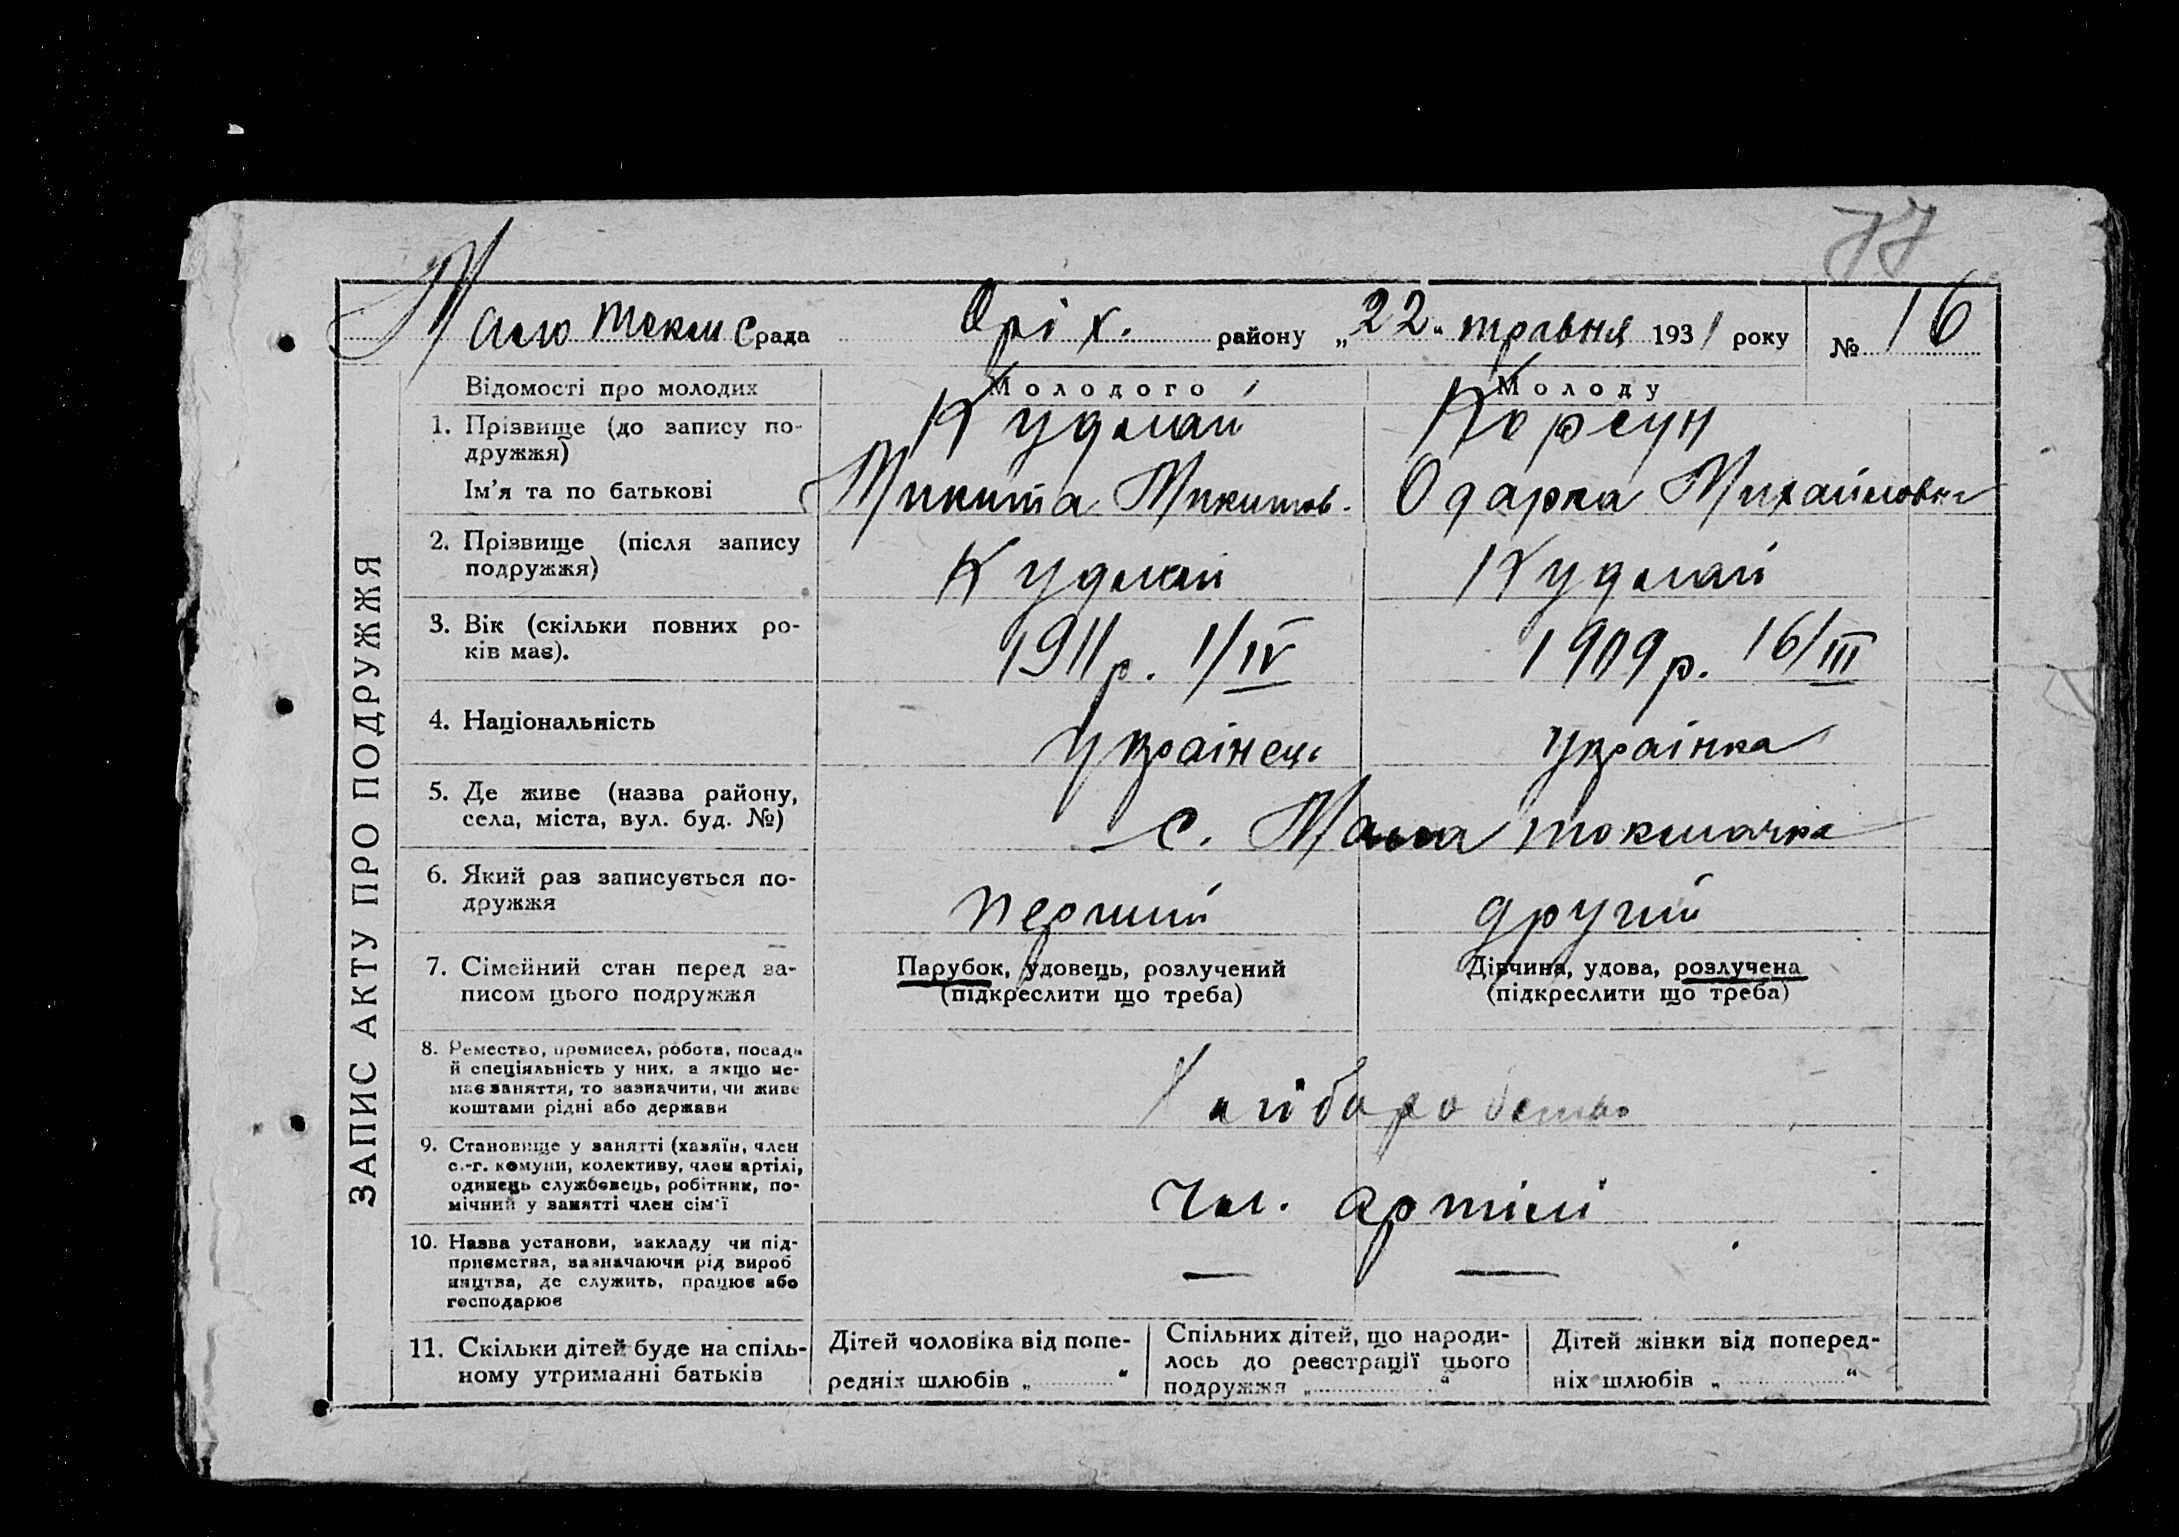 77
Мало Токм Срада Оріх. району „22" травня 1931 року № 16
ЗАПИС АКТУ ПРО ПОДРУЖЖЯ
Відомості про молодих Молодого Молоду
1. Прізвище (до запису по-
дружжя) Кудлай Корсун
Ім'я та по батькові Микита Микитов. Одарка Михайловна
2. Прізвище (після запису
подружжя) Кудлай Кудлай
3. Вік (скільки повних ро-
ків має). 1911 р. 1/IV 1909 р. 16/III
4. Національність українець українка
5. Де живе (назва району,
села, міста, вул. буд. №) с. Мала Токмачка
6. Який раз записується по-
дружжя перший другий
7. Сімейний стан перед за-
писом цього подружжя
Парубок, удовець, розлучений
(підкреслити що треба)
Дівчина, удова, розлучена
(підкреслити що треба)
8. Ремество, промисел, робота, посада
й спеціяльність у них, а якщо не-
має заняття, то зазначити, чи живе
коштами рідні або держави
9. Становище у занятті (хазяїн, член
с.-г. комуни, колективу, член артілі,
одинець службовець, робітник, по-
мічний у занятті член сім'ї
чл. артілі
10. Назва установи, закладу чи під-
приємства, зазначаючи рід вироб
ництва, де служить, працює або
господарює
— —
11. Скільки дітей буде на спіль-
ному утриманні батьків
Дітей чоловіка від попе-
редніх шлюбів „ “
Спільних дітей, що народи-
лось до реєстрації цього
подружжя „ “
Дітей жінки від поперед-
ніх шлюбів „ “